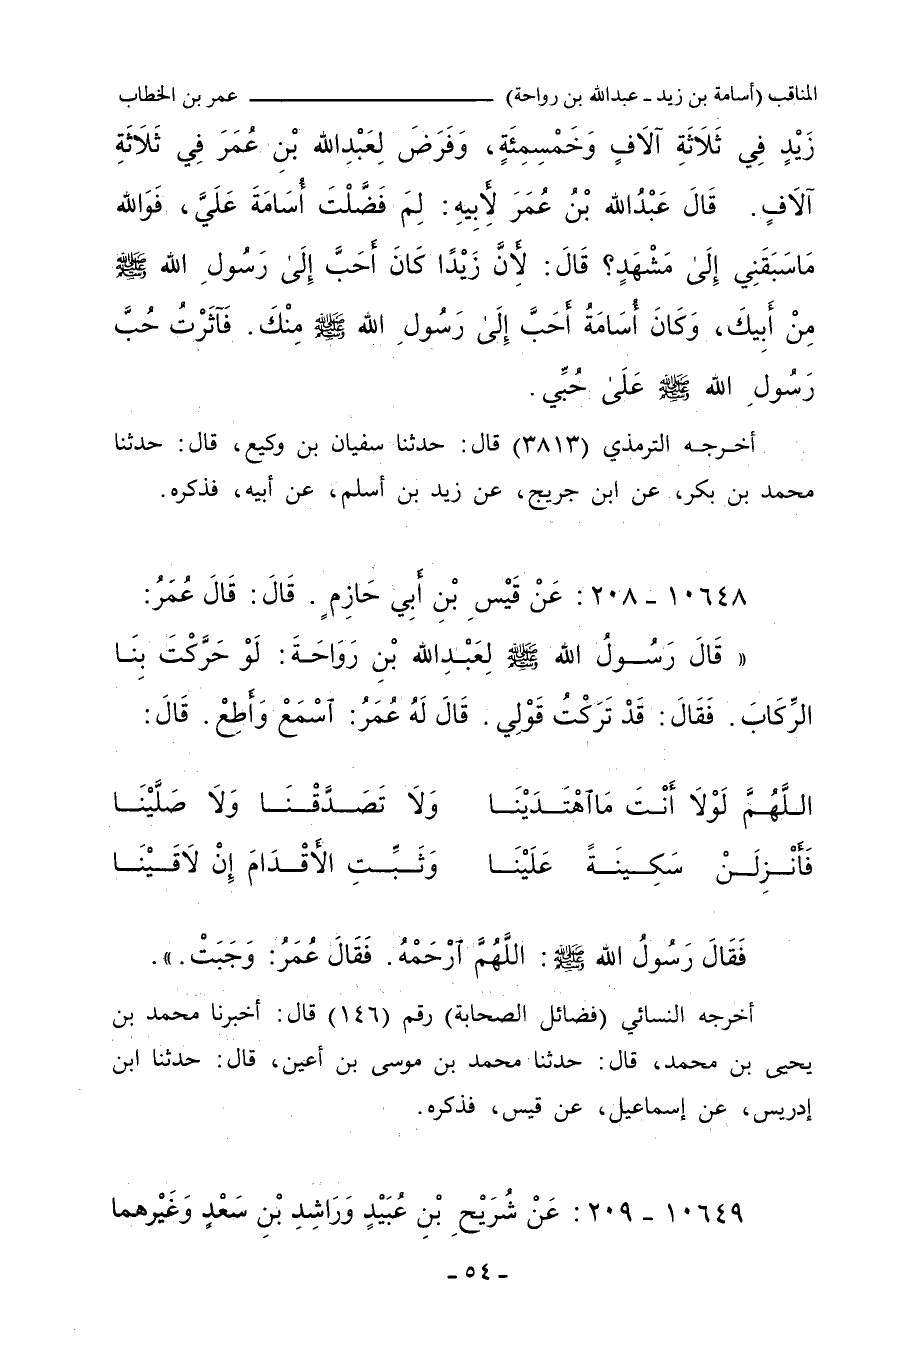 المناقب (أسامة بن زيد ـ عبدالله بن رواحة) ــــــــــــــــ عمر بن الخطاب
زَيْدٍ فِي ثَلَاثَةِ آلَافٍ وَخَمْسِمِئَةٍ، وَفَرَضَ لِعَبْدِالله بْنِ عُمَرَ فِي ثَلَاثَةِ
آلَافٍ. قَالَ عَبْدُالله بْنُ عُمَرَ لأَبِيهِ: لِمَ فَضَّلْتَ أُسَامَةَ عَلَيَّ، فَوَالله
مَاسَبَقَنِي إِلَىٰ مَشْهَدٍ؟ قَالَ: لأَنَّ زَيْدًا كَانَ أَحَبَّ إِلَىٰ رَسُولِ الله ﷺ
مِنْ أَبِيكَ، وَكَانَ أُسَامَةُ أَحَبَّ إِلَىٰ رَسُولِ الله ﷺ مِنْكَ. فَآثَرْتُ حُبَّ
رَسُولِ الله ﷺ عَلَىٰ حُبِّي.
أخرجه الترمذي (٣٨١٣) قال: حدثنا سفيان بن وكيع، قال: حدثنا
محمد بن بكر، عن ابن جريج، عن زيد بن أسلم، عن أبيه، فذكره.
١٠٦٤٨ ـ ٢٠٨: عَنْ قَيْسِ بْنِ أَبِي حَازِمٍ. قَالَ: قَالَ عُمَرُ:
« قَالَ رَسُولُ الله ﷺ لِعَبْدِالله بْنِ رَوَاحَةَ: لَوْ حَرَّكْتَ بِنَا
الرِّكَابَ. فَقَالَ: قَدْ تَرَكْتُ قَوْلِي. قَالَ لَهُ عُمَرُ: ٱسْمَعْ وَأَطِعْ. قَالَ:
اللَّهُمَّ لَوْلَا أَنْتَ مَاٱهْتَدَيْنَا وَلَا تَصَدَّقْنَا وَلَا صَلَّيْنَا
فَأَنْزِلَنْ سَكِينَةً عَلَيْنَا وَثَبِّتِ الأَقْدَامَ إِنْ لَاقَيْنَا
فَقَالَ رَسُولُ الله ﷺ: اللَّهُمَّ ٱرْحَمْهُ. فَقَالَ عُمَرُ: وَجَبَتْ.».
أخرجه النسائي (فضائل الصحابة) رقم (١٤٦) قال: أخبرنا محمد بن
يحيى بن محمد، قال: حدثنا محمد بن موسى بن أعين، قال: حدثنا ابن
إدريس، عن إسماعيل، عن قيس، فذكره.
١٠٦٤٩ ـ ٢٠٩: عَنْ شُرَيْحِ بْنِ عُبَيْدٍ وَرَاشِدِ بْنِ سَعْدٍ وَغَيْرِهما
ـ ٥٤ ـ